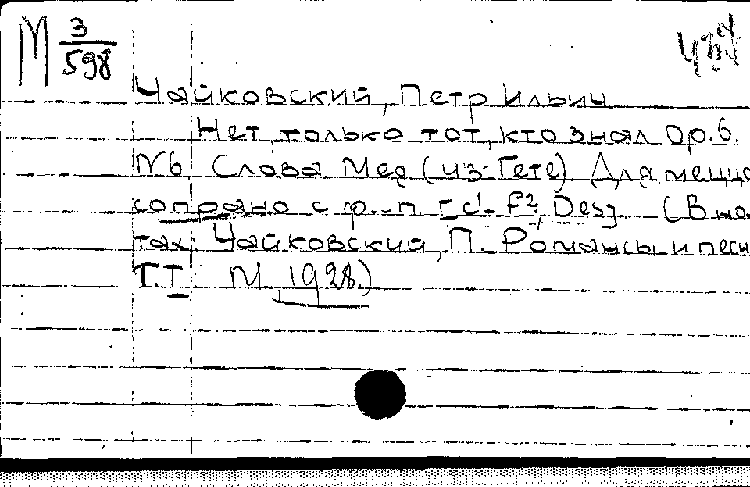 М 3/598
Чайковский, Петр Ильич
Нет, только тот, кто знал Op. 6.
N 6 Слова Мея (из Гете) Для меццо
сопрано с ф.-п [c¹- f², Des]. (В но
тах: Чайковский, П. Романсы и песн
Т. I М. 1928.)